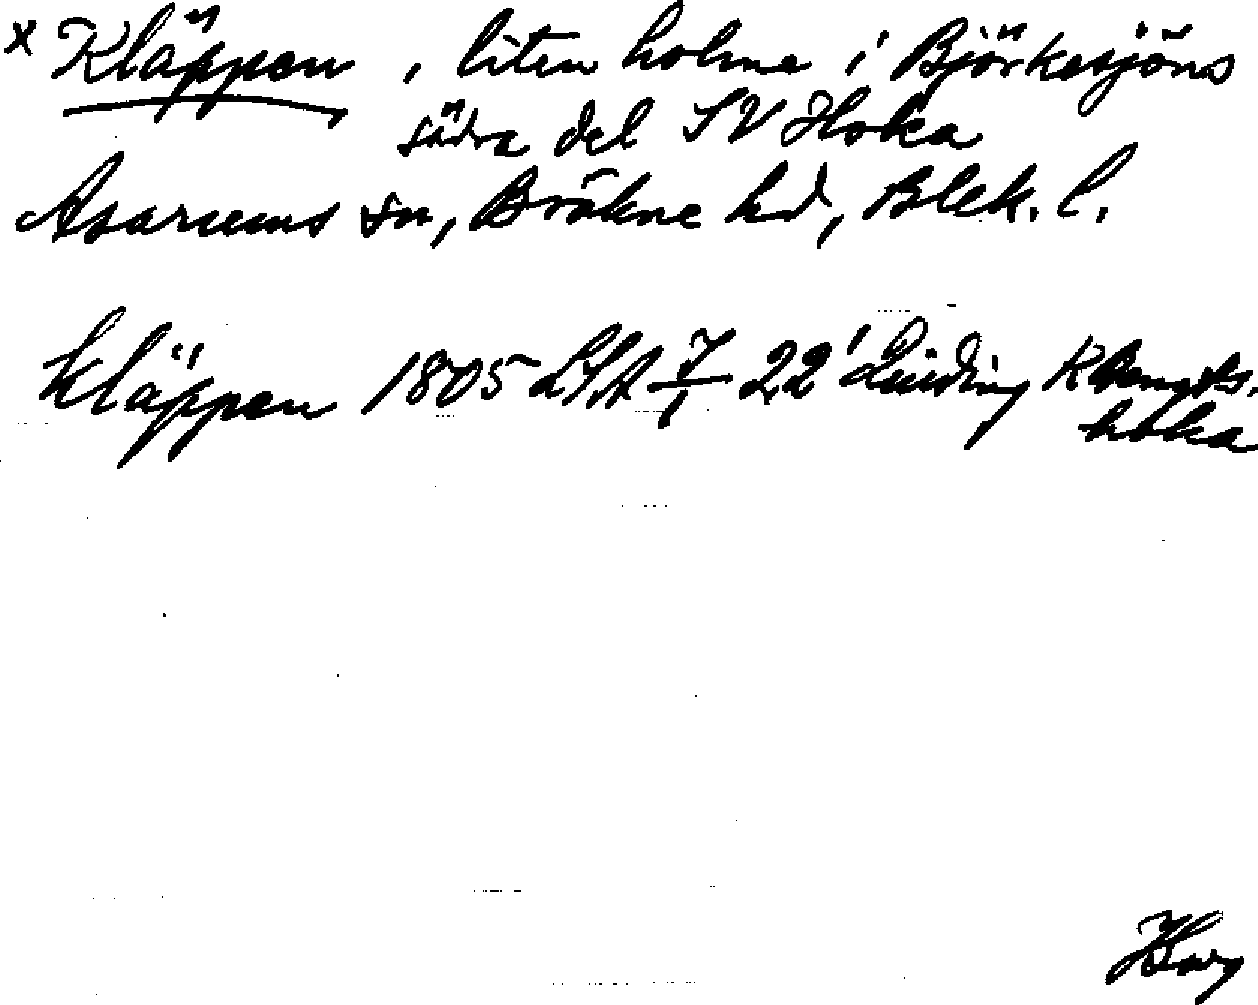 x Kläppen, liten holme i Björkesjöns
södra del SV Hoka
Asarums sn, Bräkne hd, Blek. l.
Kläppen 1805 LSA 22
hoka